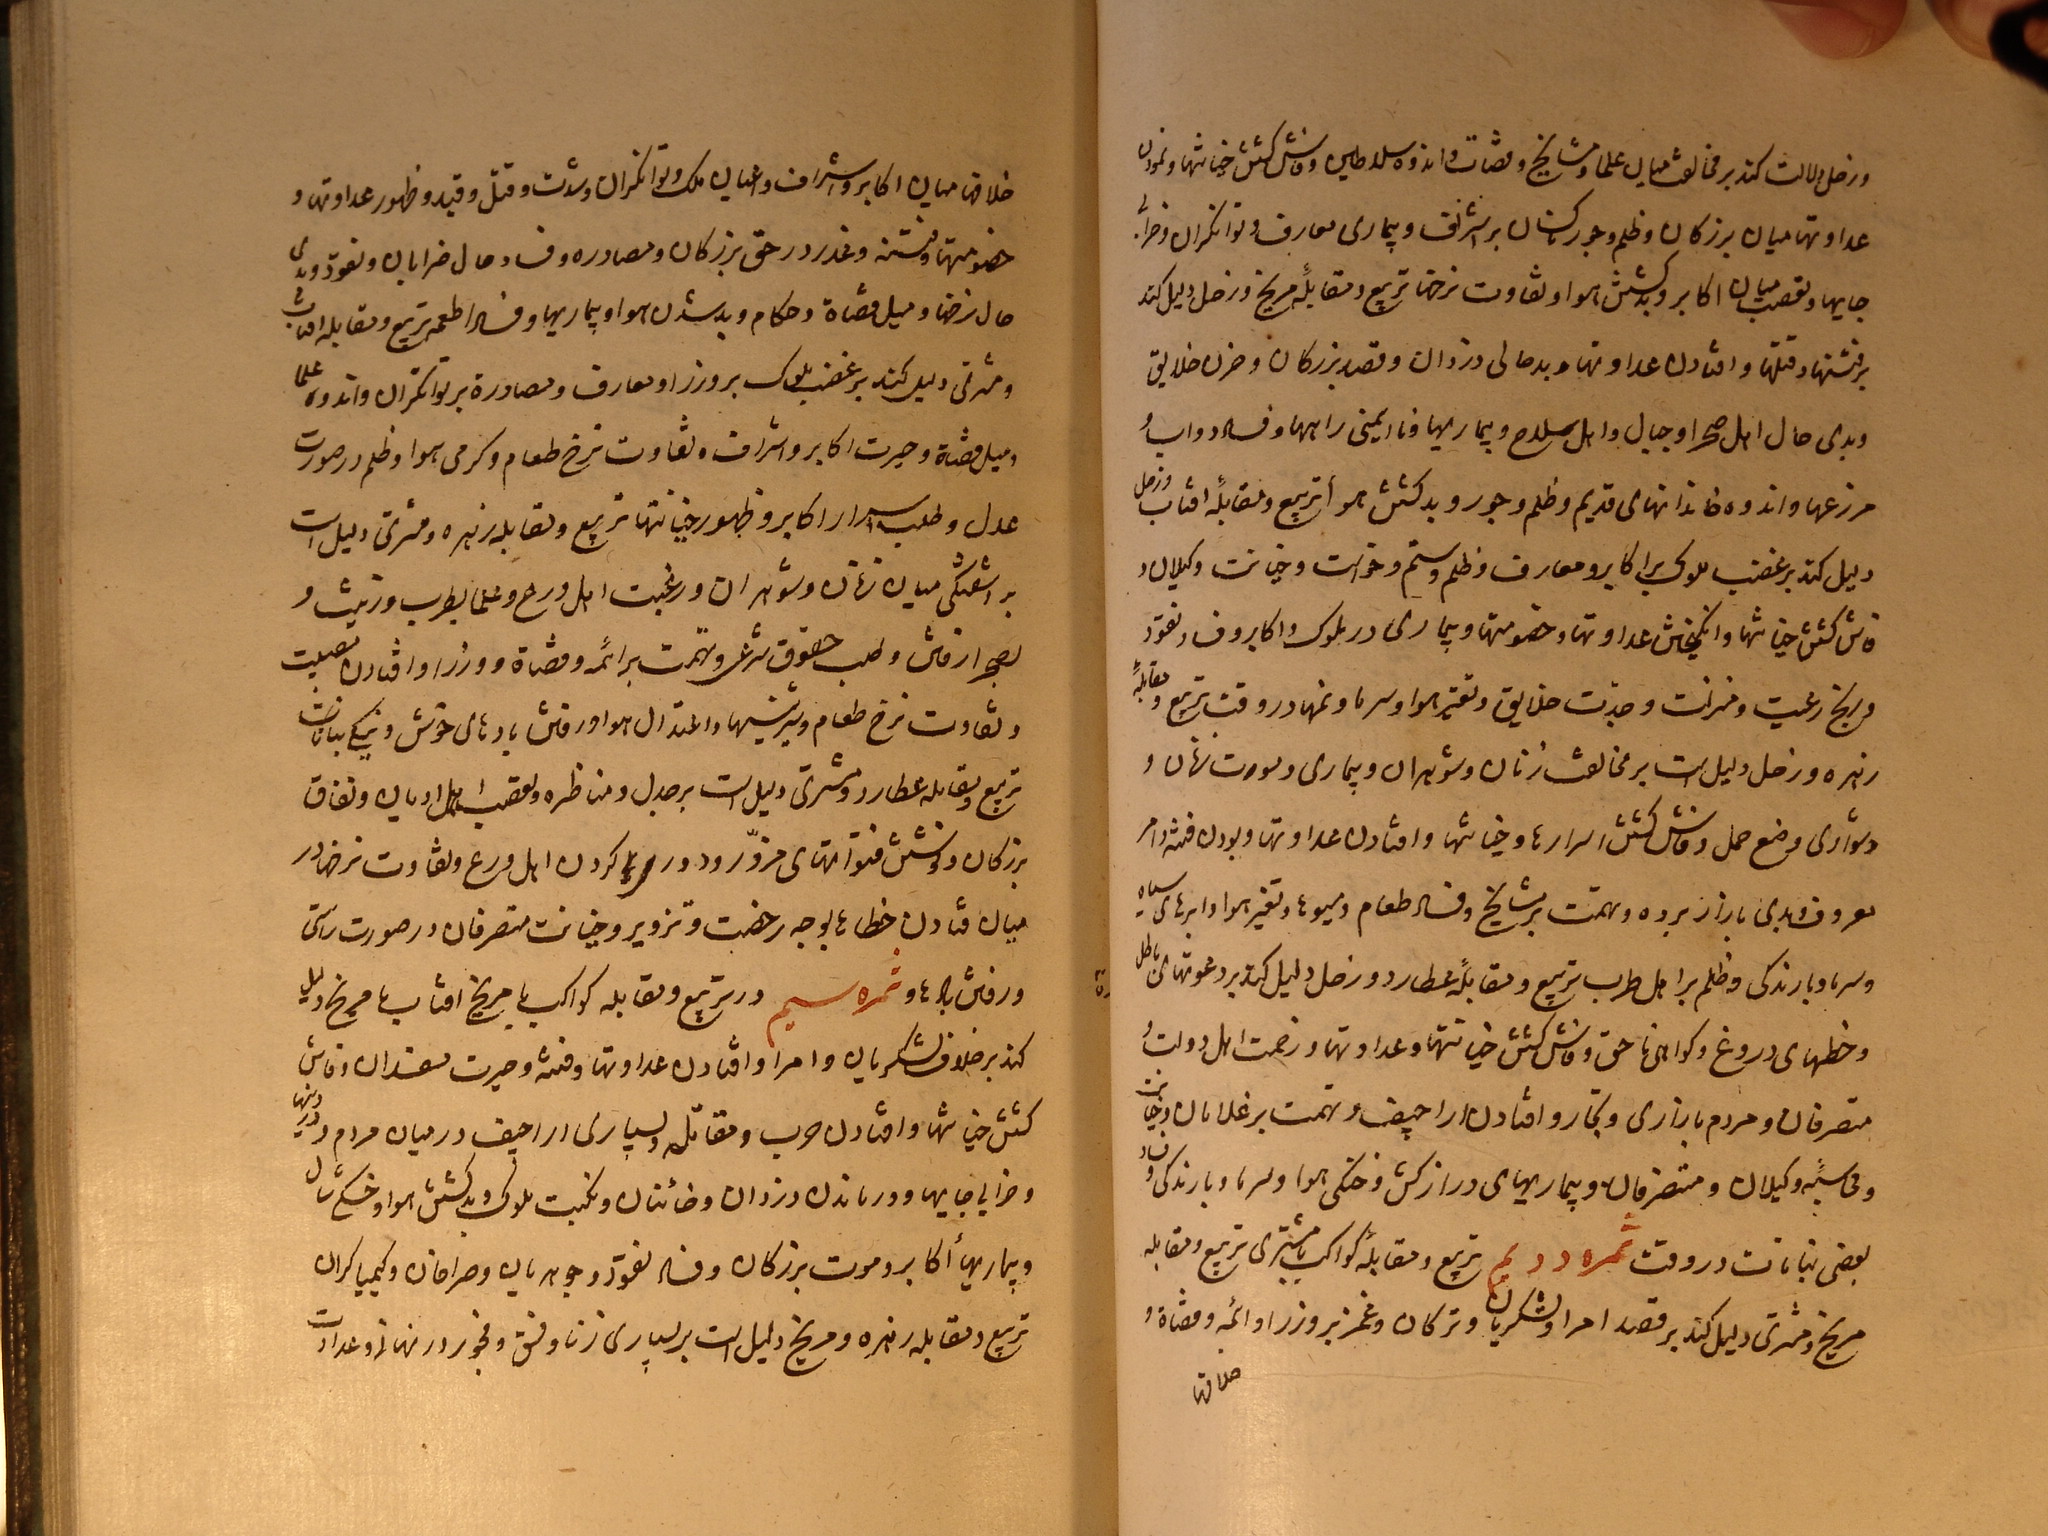 و زحل دلالت کند بر مخالفت میان علما و مشایخ و قضات و اندوه سلاطین و فاش کشتن خیانتها و نمودن
عداوتها میان بزرکان و ظلم و جور کسان بر اشراف و بیماری معارف و توانکران و خرابی
جایها و تعصب میان اکابر و بد کشتن هوا و تفاوت نرخها تربیع و مقابلهٔ مریخ و زحل دلیل کند
بر فتنتها و قتلها و افتادن عداوتها و بدحالی دزدان و قصد بزرکان و حزن خلایق
و بدی حال اهل صحرا و جبال و اهل سلاح و بیماریها و ناایمنی راهها و فساد دواب و
مزرعها و اندوه خاندانهای قدیم و ظلم و جور و بد کشتن هوا تربیع و مقابلهٔ افتاب و زحل
دلیل کند بر غضب ملوک بر اکابر و معارف و ظلم و ستم و خواست و خیانت وکیلان و
فاش کشتن خیانتها و انکیختن عداوتها و خصومتها و بیماری در ملوک و اکابر و فساد نقود
و رنج رعیت و خلایق و تغیر هوا و سرما و نمها در وقت تربیع و مقابلهٔ
زهره و زحل دلیل است بر مخالفت زنان و شوهران و بیماری و موت زنان و
دشواری وضع حمل و فاش کشتن اسرارها و خیانتها و افتادن عداوتها و بودن فتنه و امر
معروف و بدی بازار برده و تهمت بر مشایخ و فساد طعام و میوها و تغیر هوا و ابرهای سیاه
و سرما و بارندکی و ظلم بر اهل طرب تربیع و مقابلهٔ عطارد و زحل دلیل کند بر دعوتهای باطل
و خطهای دروغ و کواهی ناحق و فاش کشتن خیانتها و عداوتها و زحمت اهل دولت و
متصرفان و مردم بازاری و تجار و افتادن اراجیف و تهمت بر غلامان و خیانت
وکیلان و متصرفان و بیماریهای دراز کش و خنکی هوا و سرما و بارندکی و فساد
بعضی نباتات در وقت ثمره دویم تربیع و مقابلهٔ کواکب با مشتری تربیع و مقابله
مریخ و مشتری دلیل کند بر قصد امرا و لشکریان و ترکان و غمز بر وزرا و ائمه و قضاة و
خلافها
خلافها میان اکابر و اشراف و اعیان ملک و توانکران و شدت و قتل و قید و ظهور عداوتها و
خصومتها و فتنه و غدر در حق بزرکان و مصادره و فساد حال ضرابان و نقود و بدی
حال نرخها و میل قضاة و حکام و بد شدن هوا و بیماریها و فساد اطعمه تربیع و مقابله افتاب
و مشرتی دلیل کند بر غضب ملوک بر وزرا و معارف و مصادرة بر توانکران و اندوه علما
و میل قضاة و حیرت اکابر و اشراف و تفاوت نرخ طعام و کرمی هوا و ظلم در صورت
عدل و طلب اسرار اکابر و ظهور خیانتها تربیع و مقابله زهره و مشرتی دلیل است
بر اشفتکی میان زنان و شوهران و رغبت اهل ورع و علما بطرب و زینت و
بصحرا رفتن و طلب حقوق شرعی و تهمت بر ائمه و قضاة و وزرا و افتادن مصیبت
و تفاوت نرخ طعام و شیرینیها و اعتدال هوا و رفتن بادهای خوش و نیکی نباتات
تربیع و مقابله عطارد و مشرتی دلیل است بر جدل و مناظره و تعصب اهل ادیان و نفاق
بزرکان و نوشتن فتواهای مزوّر و دور کردن اهل ورع و تفاوت نرخها در
میان فتادن خطاها بوجه رخصت و تزویر و خیانت متصرفان در صورت راستی
و رفتن بادها و ثمره سیم در تربیع و مقابله کواکب با مریخ افتاب با مریخ دلیل
کند بر خلاف لشکریان و امرا و افتادن عداوتها و فتنه و حیرت مفسدان و فاش
کشتن خیانتها و افتادن حرب و مقاتله و بسیاری اراجیف در میان مردم و دزدیها
و خرابی جایها و درماندن دزدان و خائنان و نکبت ملوک و بد کشتن هوا و خشکی سال
و بیماریهاء اکابر و موت بزرکان و فساد نقود و جوهریان و صرافان و کیمیاکران
تربیع و مقابله زهره و مریخ دلیل است بر بسیاری زنا و فسق و فجور در نهانی و عداوت